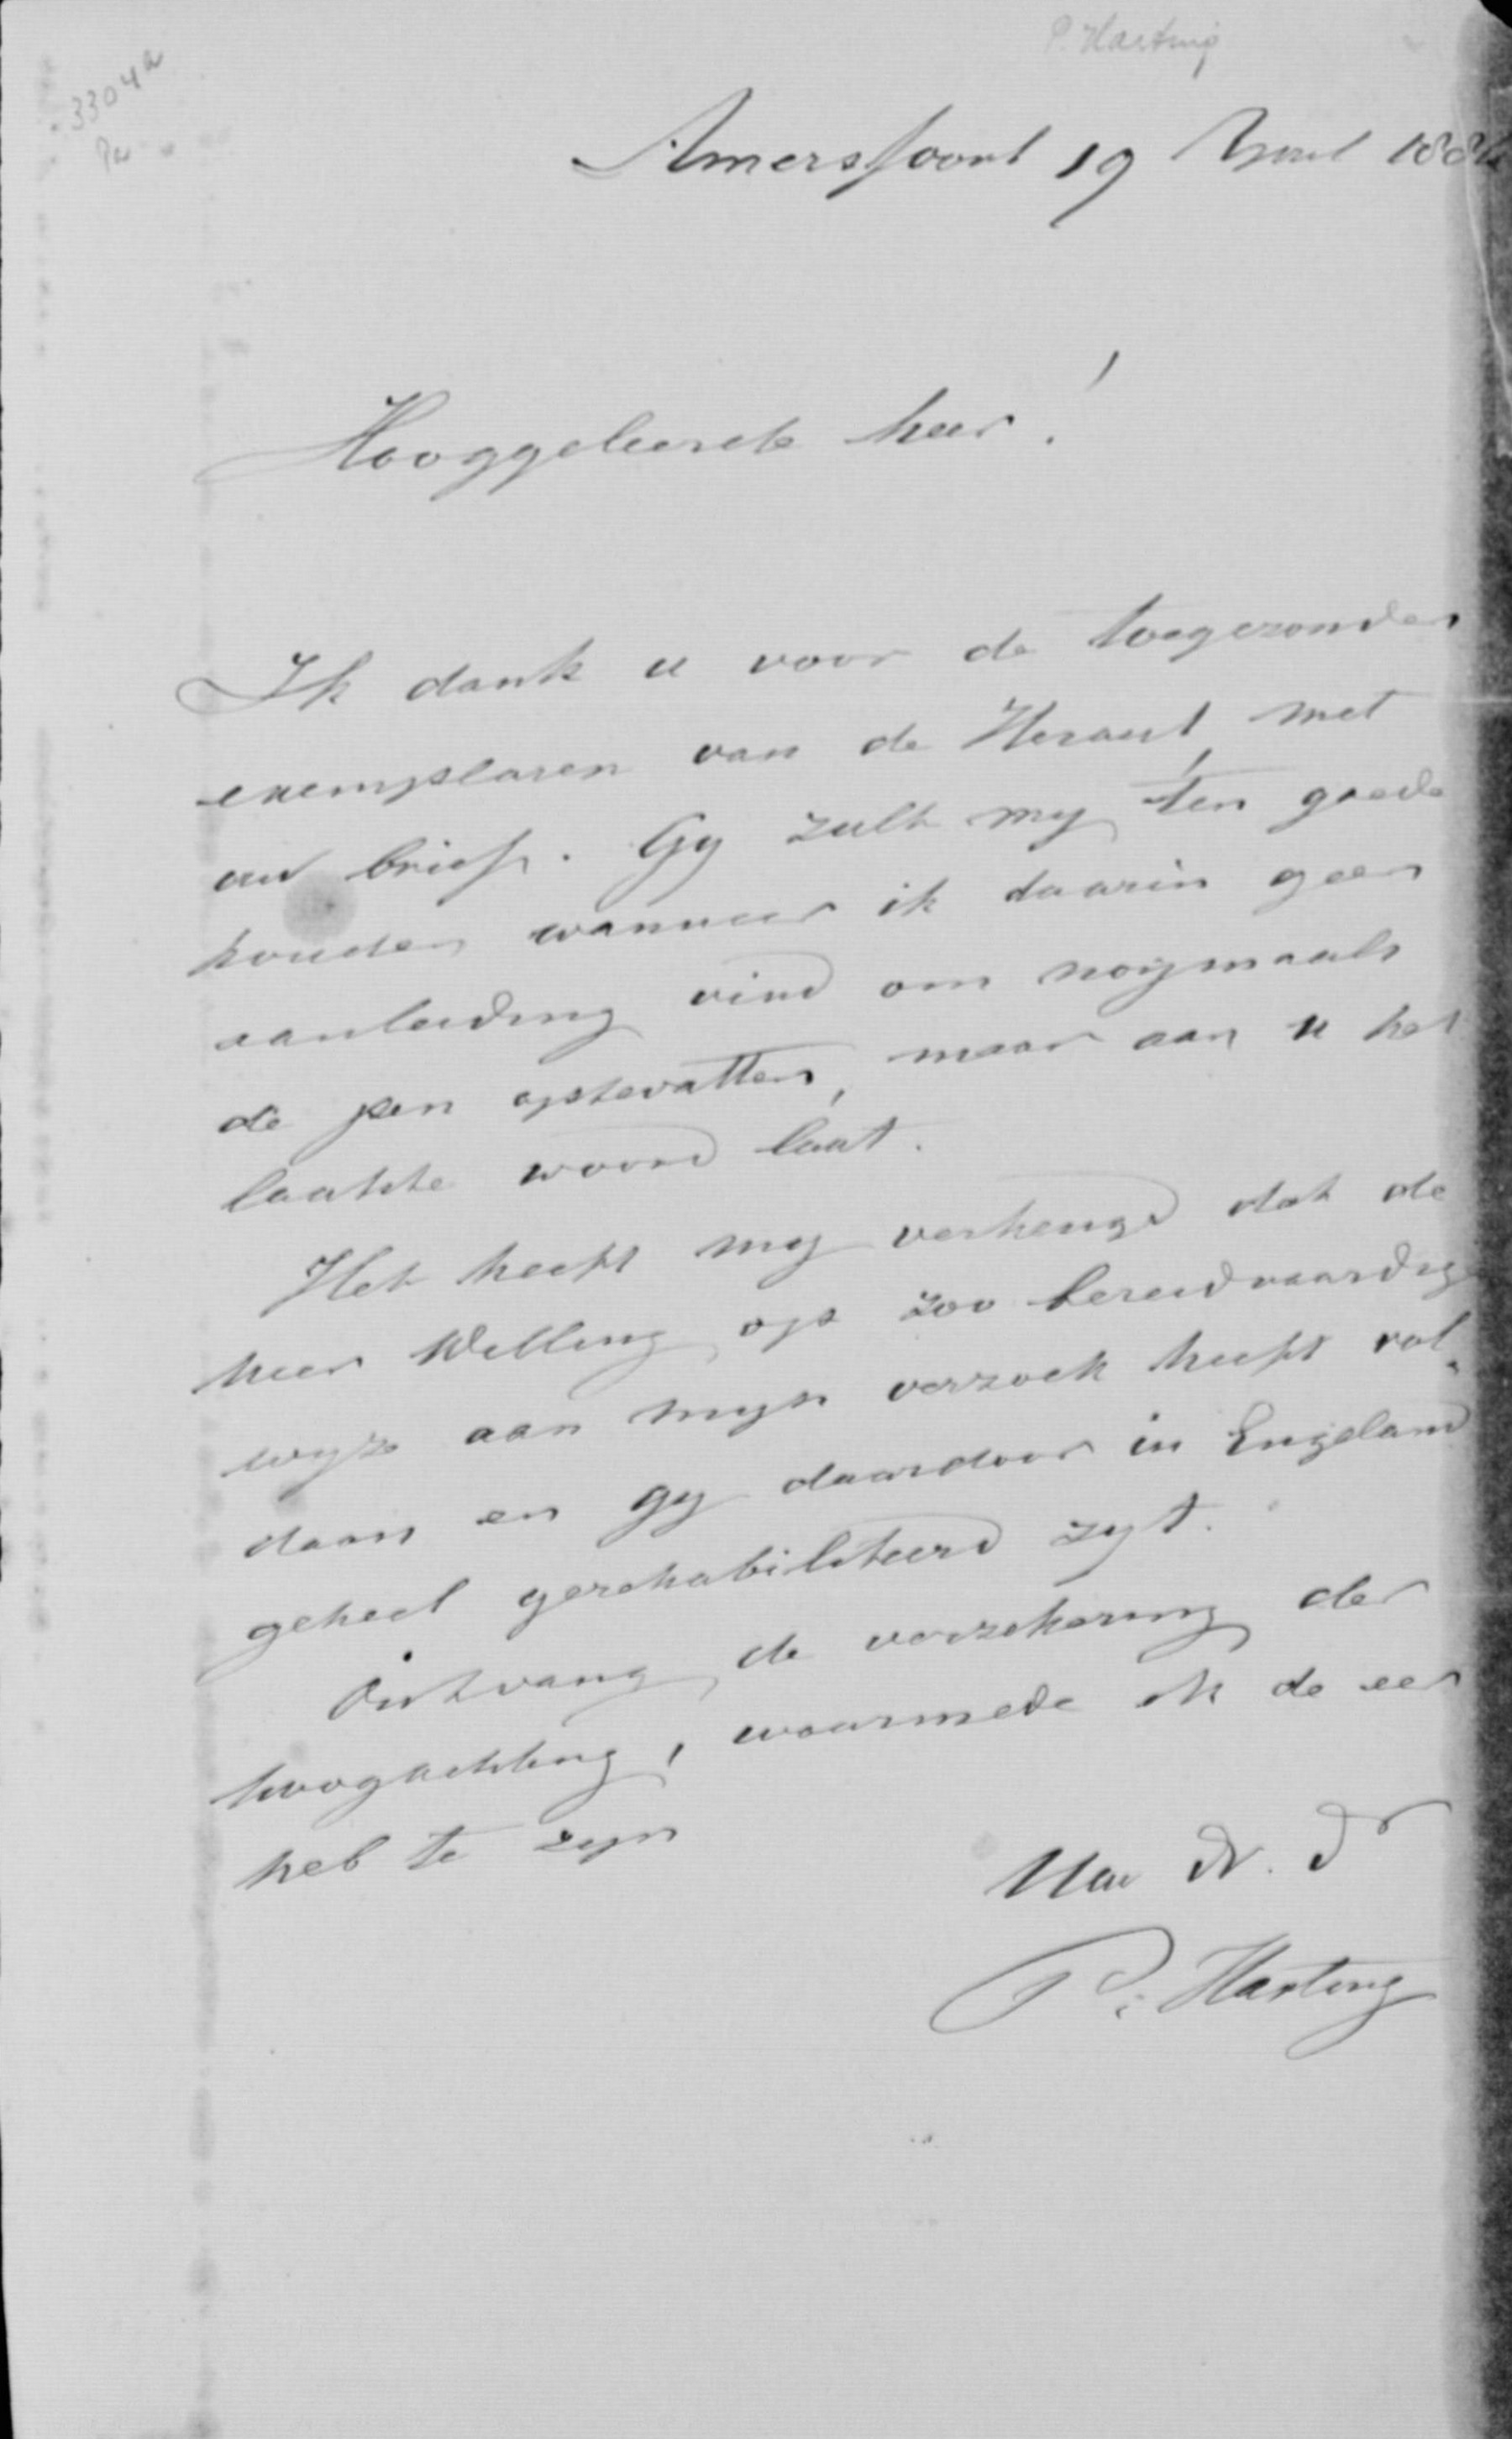 P. Harting
3304a
Amersfoort 19 April 188
Hooggeleerde heer!
Ik dank u voor de toegezonden
exemplaren van de Heraut, met
uw brief. Gy zult my ten goede
houden wanneer ik daarin geen
aanleiding vind om nogmaals
de pen optevatten, maar aan u het
laatste woord laat.
Het heeft my verheugd dat de
heer Welling op zoo bereidvaardige
wyze aan myn verzoek heeft vol
daan en gy daardoor in Engeland
geheel gerehabiliteerd zyt.
Ontvang de verzekering der
hoogachting, waarmede ik de eer
heb te zyn
Uw Dr. Dr
P. Harting